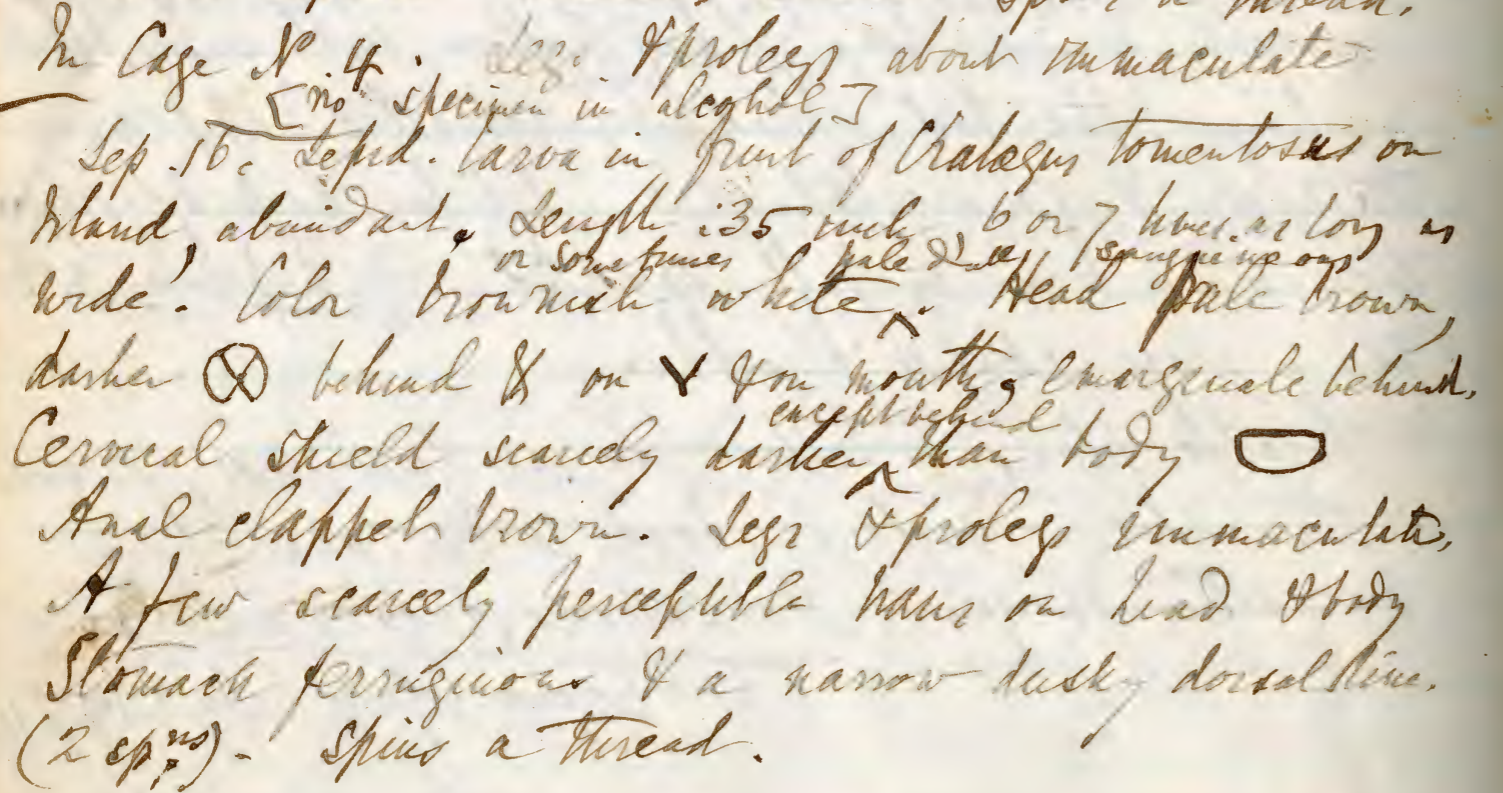 spins a thread.
In Cage N. 4. Legs & prolegs about immaculate
[no specimen in alcohol]
Sep. 16. Lepid. larva in fruit of Crataegus tomentosus on
Island, abundant. Length .35 inch, 6 or 7 times as long as
or sometimes pale dull sanguineous
wide. Color brownish white ^. Head pale brown,
darker behind & on Y & on mouth, emarginate behind.
except behind
Cervical shield scarcely darker ^ than body
Anal clappet brown. Legs & prolegs immaculate.
A few scarcely perceptible hairs on head & body
Stomach ferruginous & a narrow dusky dorsal line.
(2 spns). Spins a thread.